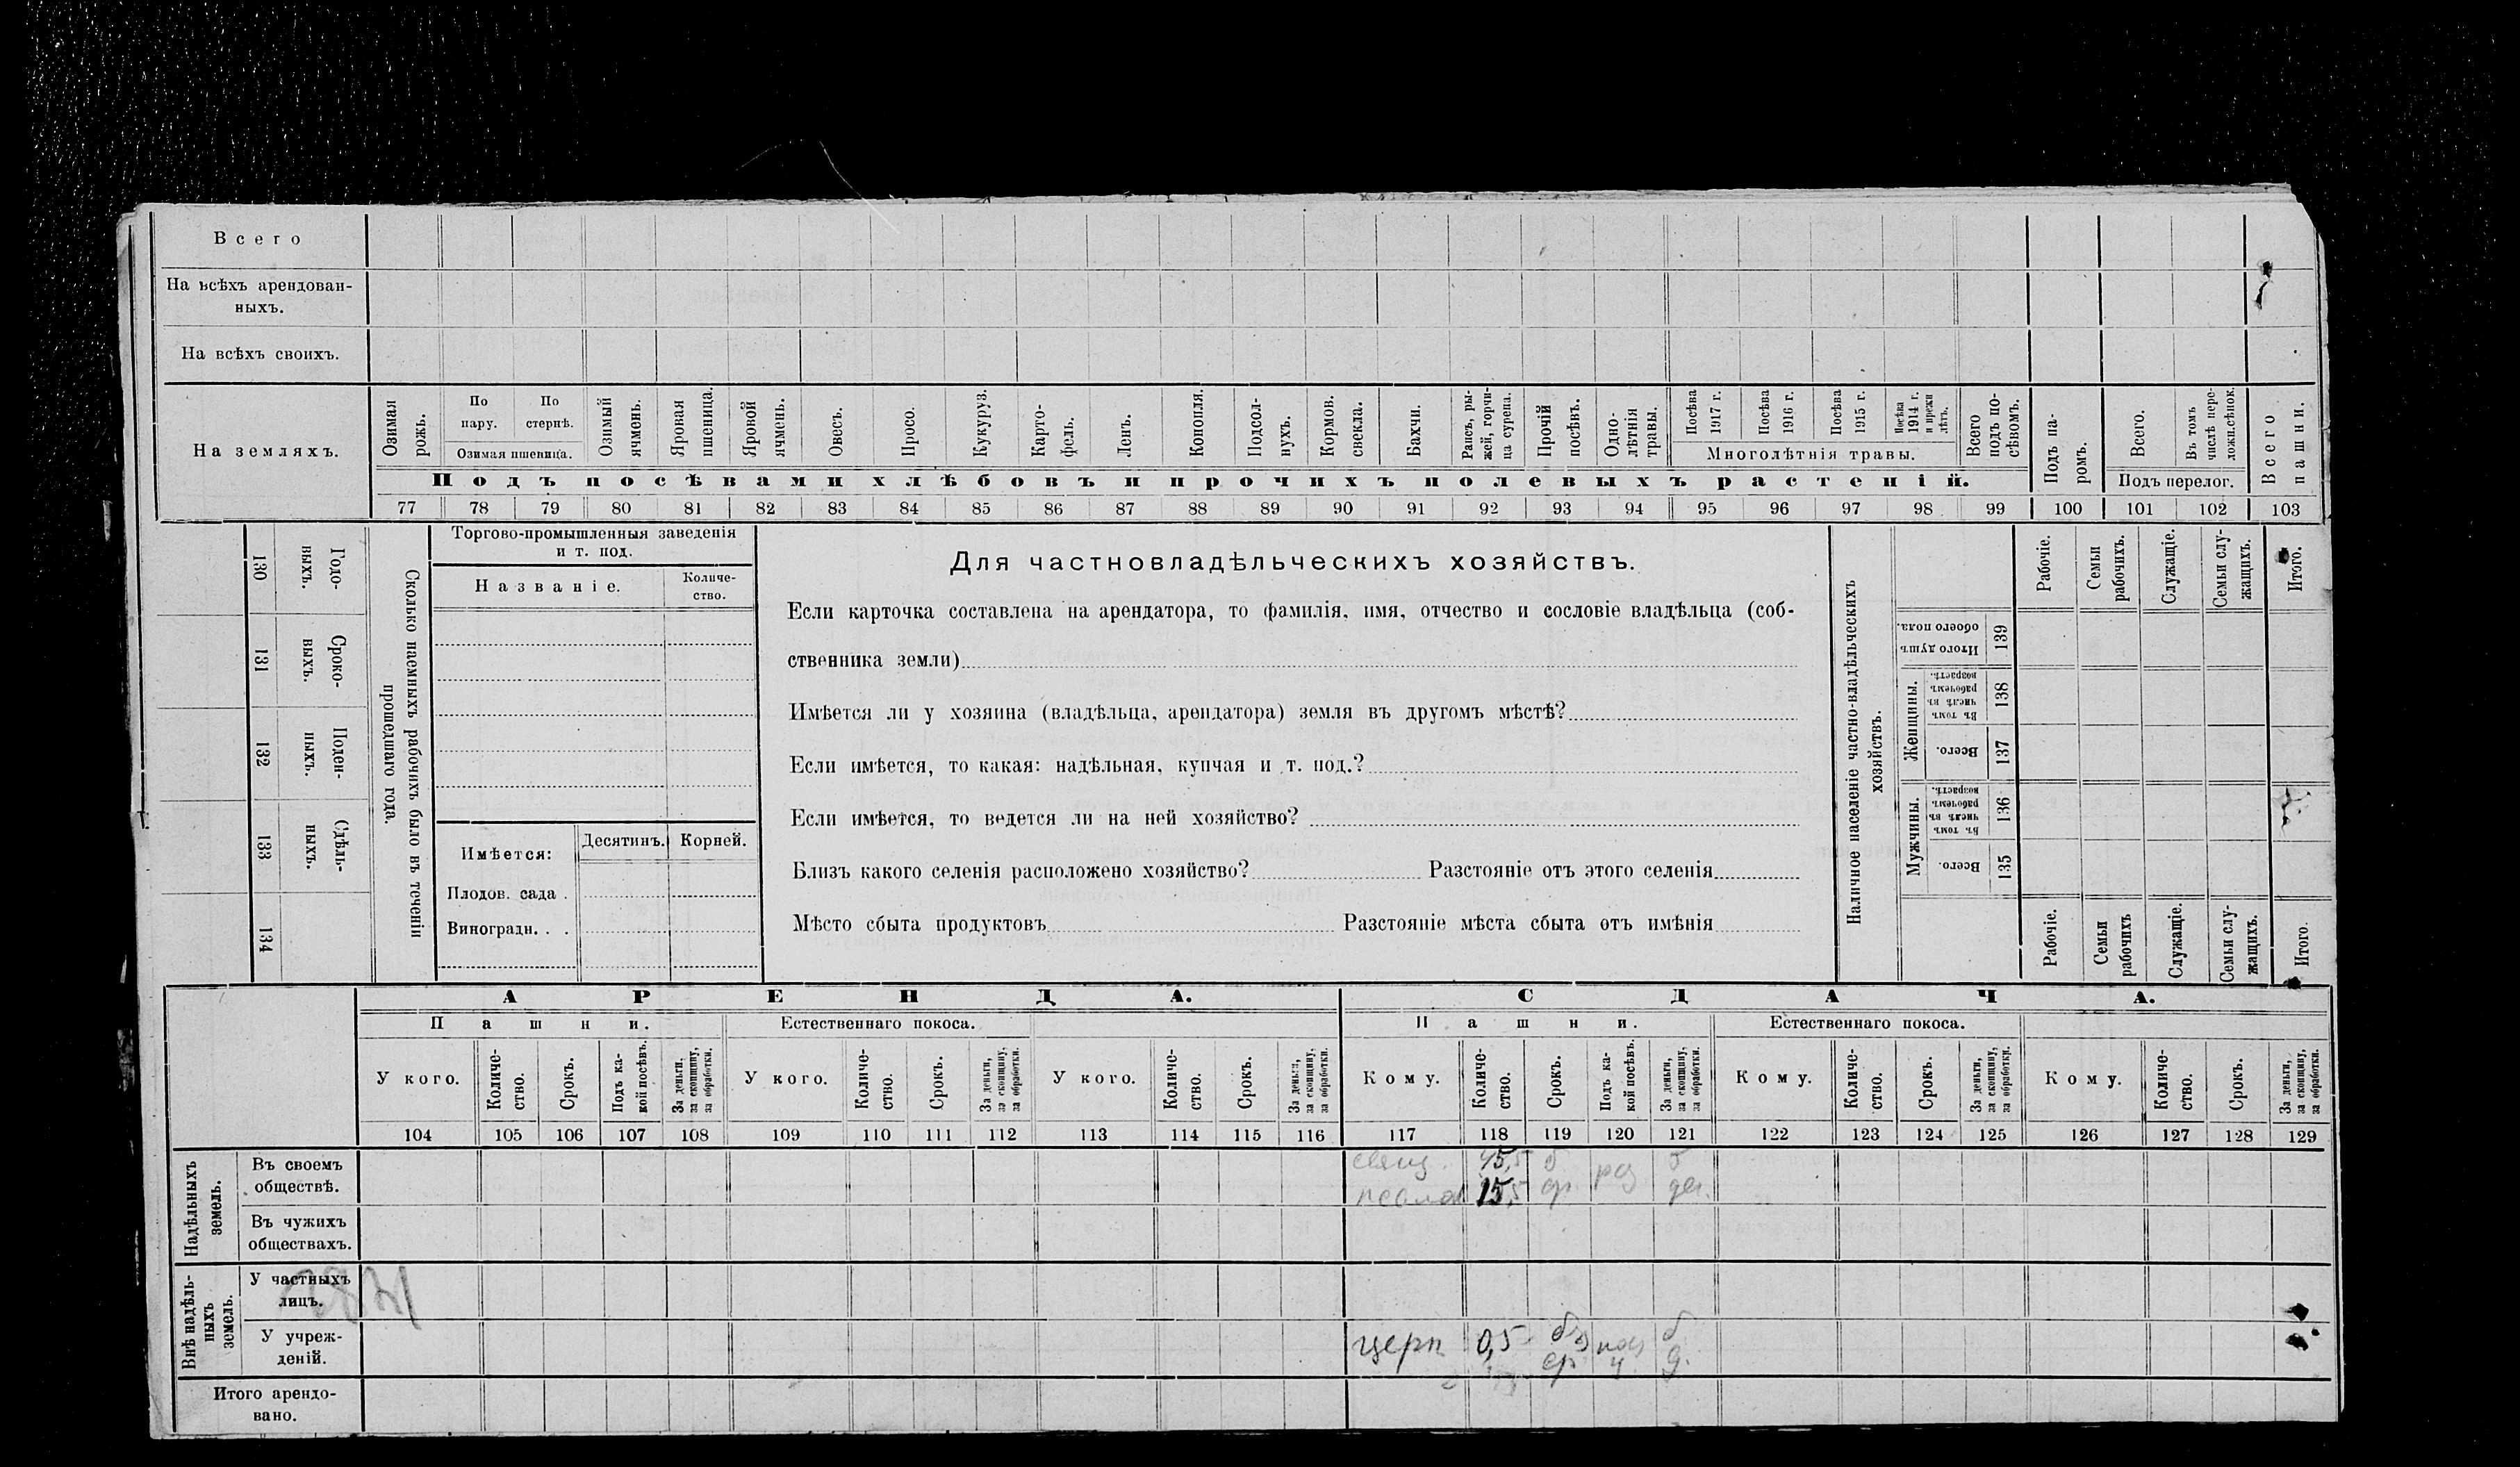 Всего
На всѣхъ арендован-
ныхъ.
На всѣхъ своихъ.
На земляхъ.
Озимая рожь.
По пару.
По стернѣ.
Озимая пшеница.
Озимый ячмень.
Яровая пшеница.
Яровой ячмень.
Овесъ.
Просо.
Кукуруз.
Карто-
фель.
Ленъ.
Конопля.
Подсол-
нухъ.
Кормов.
свекла.
Бахчи.
Рапсъ, ры-
жей, горчи-
ца сурепа.
Прочій
посѣвъ.
Одно-
лѣтнія
травы.
Посѣва
1917 г.
Посѣва
1916 г.
Посѣва
1915 г.
Посѣва
1914 г.
и прежн
лѣтъ.
Многолѣтнія травы.
Всего
подъ по-
сѣвомъ.
Подъ па-
ромъ.
Всего.
Въ томъ
числѣ пере-
ложн.сѣнок.
Подъ перелог.
Всего
пашни.
Подъ посѣвами хлѣбовъ и прочихъ полевыхъ растеній.
77 78 79 80 81 82 83 84 85 86 87 88 89 90 91 92 93 94 95 96 97 98 99 100 101 102 103
130
Годо-
выхъ.
131
Сроко-
ныхъ.
132
Поден-
ныхъ.
133
Сдѣль-
ныхъ.
134
Сколько наемныхъ рабочихъ было въ теченіи
прошедшаго года.
Торгово-промышленныя заведенія
и т. под.
Названіе.
Количе-
ство.
Имѣется:
Десятинъ.
Корней.
Плодов. сада .
Виноградн. . .
Для частновладѣльческихъ хозяйствъ.
Если карточка составлена на арендатора, то фамилія, имя, отчество и сословіе владѣльца (соб-
ственника земли)
Имѣется ли у хозяина (владѣльца, арендатора) земля въ другомъ мѣстѣ?
Если имѣется, то какая: надѣльная, купчая и т. под.?
Если имѣется, то ведется ли на ней хозяйство?
Близъ какого селенія расположено хозяйство? Разстояніе отъ этого селенія
Мѣсто сбыта продуктовъ Разстояніе мѣста сбыта отъ имѣнія
Наличное населеніе частно-владѣльческихъ
хозяйствъ.
Рабочіе.
Семьи
рабочихъ.
Служащіе.
Семьи слу-
жащихъ.
Итого.
Итого душъ
обоего пола.
139
Женщины.
Въ томъ
числѣ въ
рабочемъ
возрастѣ.
138
Всего.
137
Мужчины.
Въ томъ
числѣ въ
рабочемъ
возрастѣ.
136
Всего.
135
Рабочіе.
Семьи
рабочихъ
Служащіе.
Семьи слу-
жащихъ.
Итого.
АРЕНДА.
СДАЧА.
Пашни.
Естественнаго покоса.
Пашни.
Естественнаго покоса.
У кого.
Количе-
ство.
Срокъ.
Подъ ка-
кой посѣвъ.
За деньги,
за скопщину,
за обработки.
У кого.
Количе-
ство.
Срокъ.
За деньги,
за скопщину,
за обработки.
У кого.
Количе-
ство.
Срокъ.
За деньги,
за скопщину,
за обработки.
Кому.
Количе-
ство.
Срокъ.
Подъ ка-
кой посѣвъ.
За деньги,
за скопщину,
за обработки.
Кому.
Количе-
ство.
Срокъ.
За деньги,
за скопщину,
за обработки.
Кому.
Количе-
ство.
Срокъ.
За деньги,
за скопщину,
за обработки.
104 105 106 107 108 109 110 111 112 113 114 115 116 117 118 119 120 121 122 123 124 125 126 127 128 129
Надѣльныхъ
земель.
Въ своемъ
обществѣ.
Въ чужихъ
обществахъ.
Внѣ надѣль-
ныхъ
земель.
У частныхъ
лицъ.
У учреж-
деній.
церк 0,5
Итого арендо-
вано.